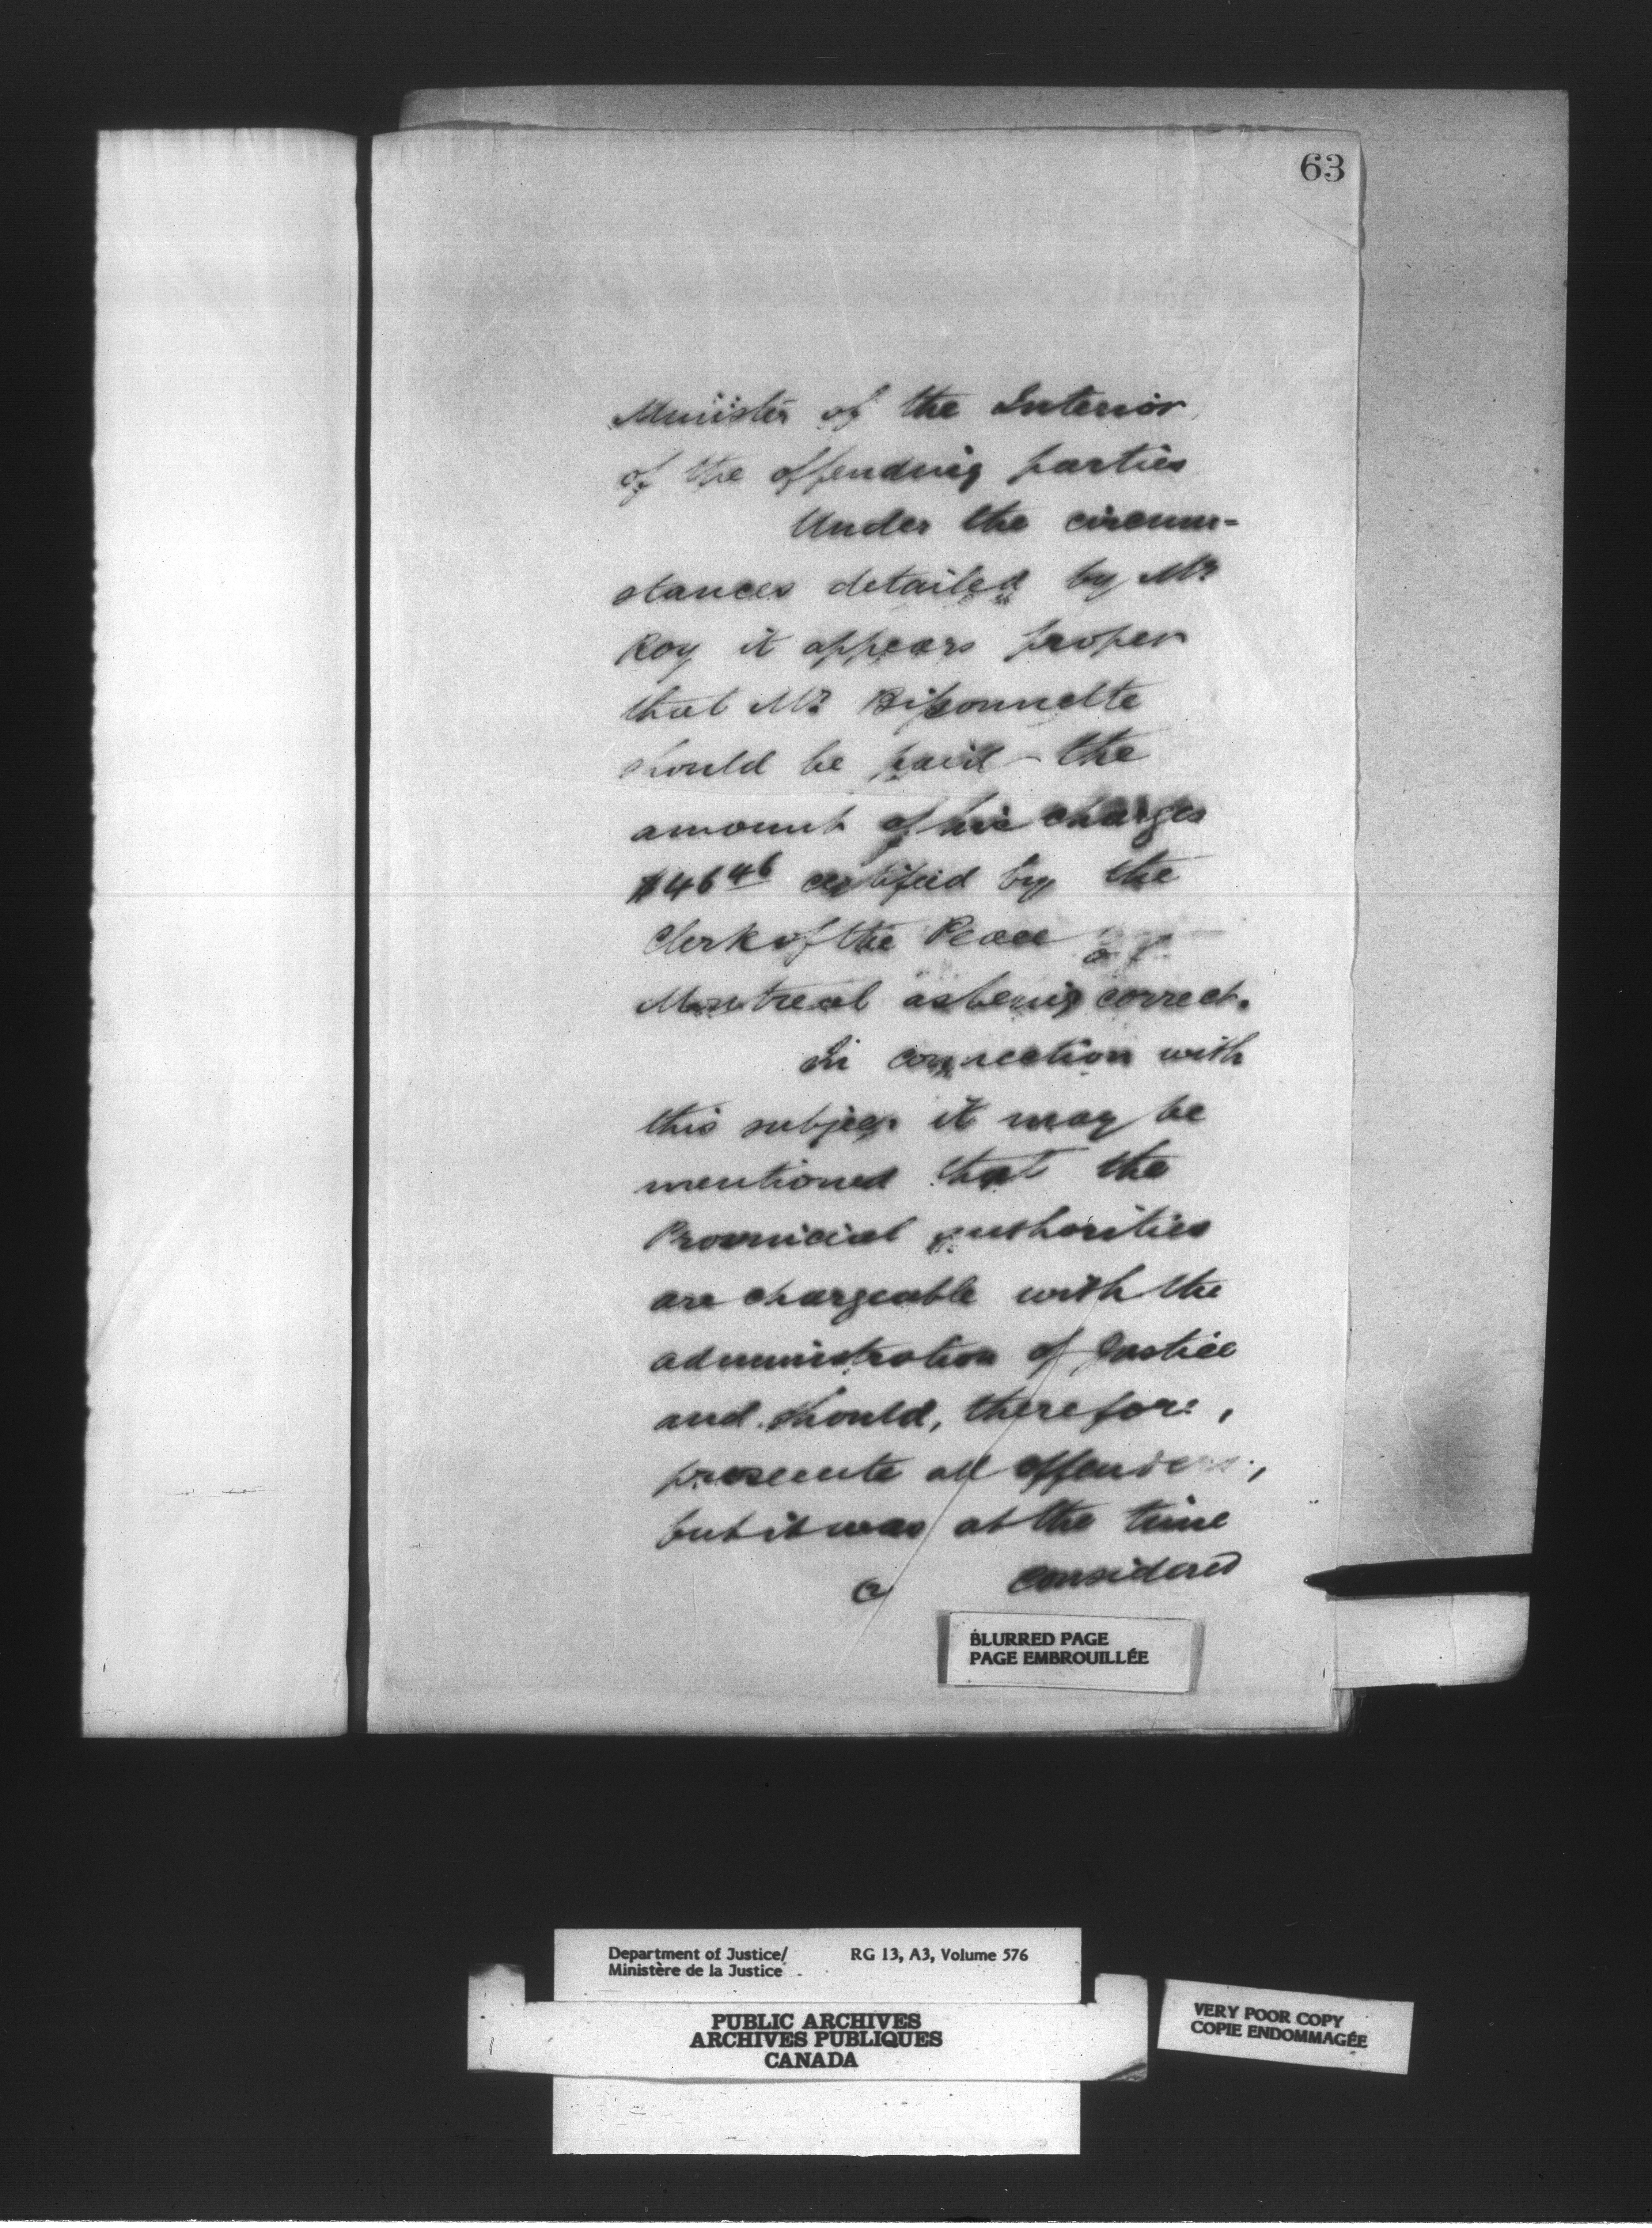 63
Minister of the Interior
of the offending parties
Under the circum-
stances detailed by Mr
Roy it appears proper
that Mr Bissonnette
should be paid the
amount of his charges
$46 46 certified by the
Clerk of the Peace of
Montreal as being correct.
In connection with
this subject it may be
mentioned that the
Provincial authorities
are chargeable with the
administration of Justice
and should, therefore,
prosecute all offenders,
but it was at the time
considered
BLURRED PAGE
PAGE EMBROUILLÉE
Department of Justice/ RG 13, A3, Volume 576
Ministère de la Justice
PUBLIC ARCHIVES
ARCHIVES PUBLIQUES
CANADA
VERY POOR COPY
COPIE ENDOMMAGÉE